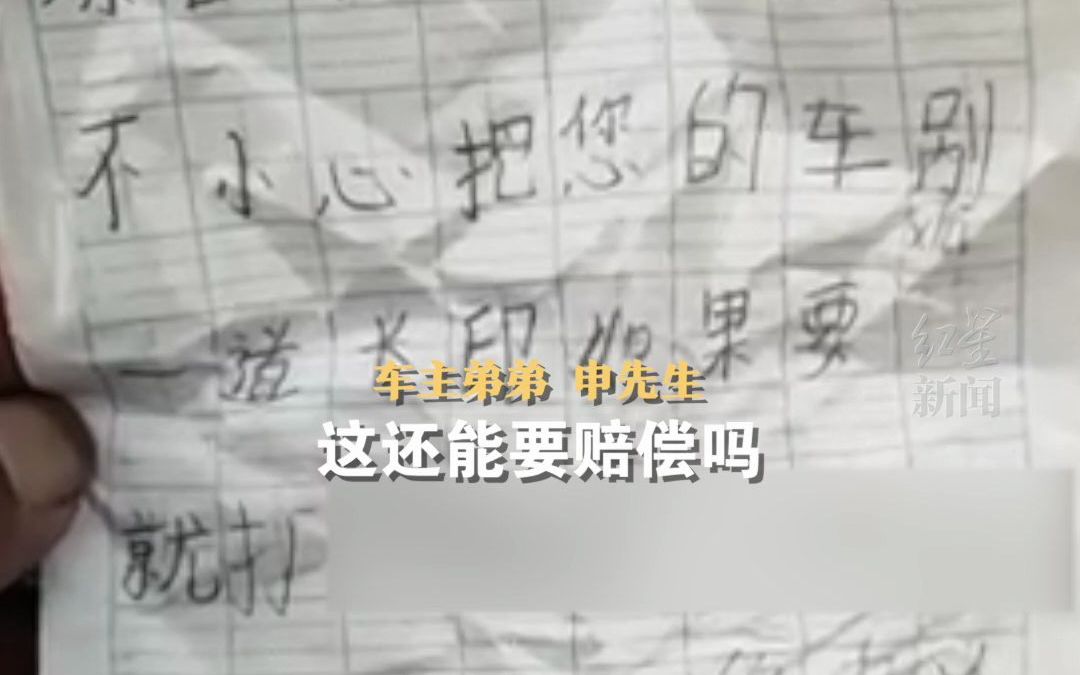 不小心把您的车别
一道长印如果要
红星
新闻
车主弟弟 申先生
这还能要赔偿吗
就打